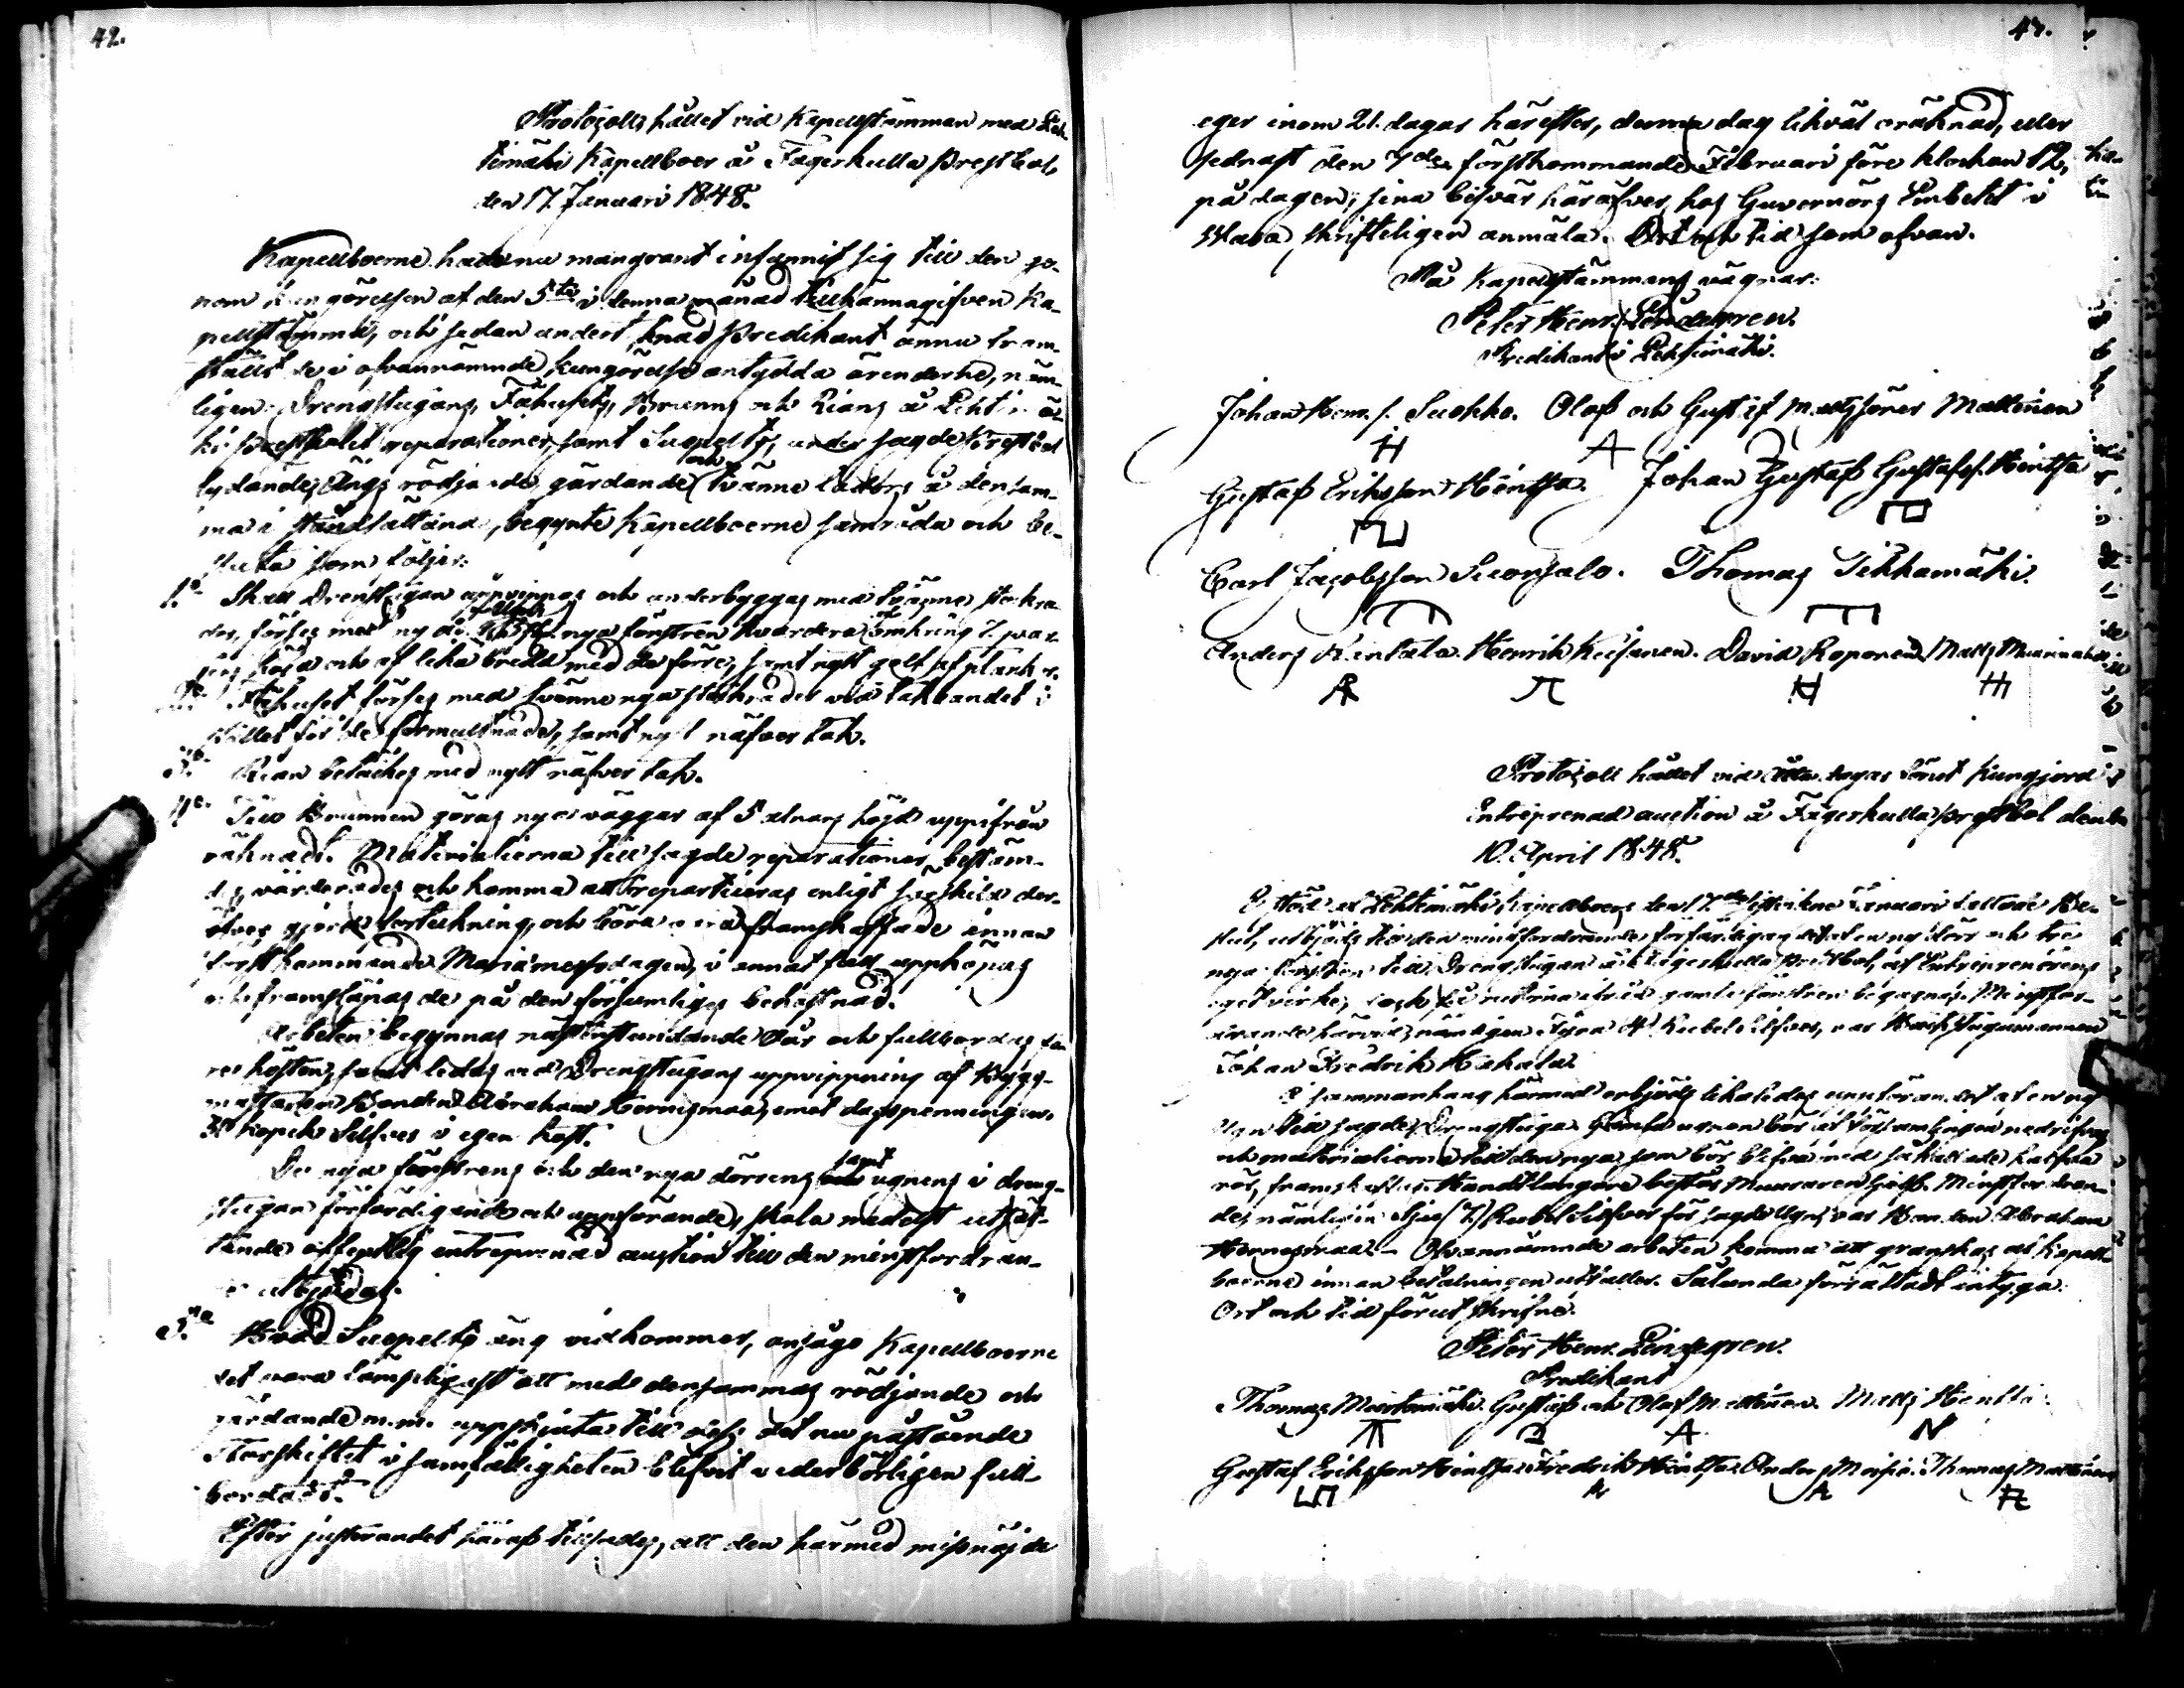 42.
Protocoll, hållet vid Kapellstämman med Leh-
timäki Kapellboer å Fagerkulla Prestbol,
den 17 Januari 1848.
Kapellboerne hade nu mangrant infunnit sig till den ge-
nom kungörelsen af den 5te i denna månad tillkännagifven Ka-
pellstämma, och sedan undert>knad Predikant ännu fram-
ställt de i ofvannämnde kungörelse antydda ärenderne, näm-
ligen: Drengstugans, Fähusets, Brunns och Rians å Lehtimä-
ki Prestbolet reparationer, samt Suopelto, under sagde Prestbol
lydande, Ängs rödjande gärdande och tvänne lators å densam-
ma i stånd sättand, begynte Kapellboerne samråda och be-
sluta som följer:
1o Skall Drengstugan uppvippas och underbyggas med tvänne stockra-
der, förses med ny dörr nya fönstren hvardera omkring
höjd och af lika bredd med de förre, samt nytt golf af plankor.
2o Fähuset förses med tvänne nya stockrader vid takbandet i
stället för de förmultnade, samt nytt näfver tak.
3o Rian betäckes med nytt näfver tak.
4o Till Brunnen göras nya väggar af 5 alnars höjd uppifrån
räknadt. Materialierna till sagde reparationer bestäm-
des, värderades och komma att reparticeras enligt särskild der-
öfver gjord förtekning, och böra vara framskaffade innan
först kommande Mariæmessodagen, i annat fall upphöpas
och framsläpas de på den försumliges bekostnad.
Arbeten begynnas nästinstundande Vår och fullbordas fö-
re hösten, samt ledas vid Drengstugans uppvippning af Bygg-
mästaren Bonden Abraham Hernesmaa, emot dagspenningen
30 kopek Silfver i egen kost.
De nya fönstrens och den nya dörrens samt ugnens i dreng-
stugan förfärdigande och uppförande, skola medelst utsät-
tande offentlig entreprenad auction till den minstfordran-
de utbjudas.
5o Hvad Suopelto äng vidkommer, ansågo Kapellboerne
det vara lämpligast att med densammas rödjande och
gärdande m.m. uppskjuta till dess det nu påstående
Storskiftet i samfälligheten blifvit vederbörligen full-
bordadt.
Efter justerandet häraf tillsades, att den härmed missnöjde
43.
eger inom 21. dagar härefter, denna dag likväl oräknad, eller
sednast den 7de förstkommande Februari före klockan 12,
på dagen, sina besvär häröfver, hos Guvernörs Embetet i
Wasa, skrifteligen anmäla. Ort och tid som ofvan.
På Kapellstämmans vägnar:
Peter Henr. Lindegren.
Predikant i Lehtimäki.
Johan Henr. s. Suokko. Olof och Gustaf Mattssöner Mattinen
Gustaf Eriksson Hintsa. Johan Gustaf Gustafss. Hintsa
Carl Jacobsson Suonsalo. Thomas Tikkamäki.
Anders Rintala. Henrik Keisanen. David Roponen. Matts
Protocoll hållet vid dagar förut Kungjord
Entreprenad auction å Fagerkulla Prestbol den
10. April 1848.
I stöd af Lehtimäki Kapellboers den 17de sistvikne Januari fattade Be-
slut, utbjöds till den minstfordrande förfärdigandet af en ny dörr och tre
nya fönstren till Drengstugan å Fagerkulla Prestbol, af Entreprenörens
eget virke, dock få rutorna ifrån gamla fönstren begagnas. Minstfor-
drande härvid, nämligen Fyra (4) Rubel Silfver, var Backstugumannen
Johan Fredrik Hakala.
I sammanhang härmed utbjöds likaledes uppförandet af en ny
ugn till sagde Drengstuga. Gamla ugnen bör af församlingen nedrifvas
och materialierna till den nya, som bör blifva med så kallade kalfva
rör, framskaffas. Handtlangare bestås Muuraren häst. Minstfordran-
de, nämligen Sju (7) Rubel Silfver för sagde Ugn, var Bonden Abraham
Hernesmaa. Ofvannämnde arbeten komma att granskas af Kapell-
boerne innan betalningen utfaller. Sålunda förrättadt intyga:
Ort och tid förut skrifne.
Peter Henr. Lindegren.
Predikant
Thomas Gustaf och Olof Mattinen. Matts Hintsa.
Gustaf Eriksson Hintsa. Fredrik Hintsa. Anders Thomas Mattinen